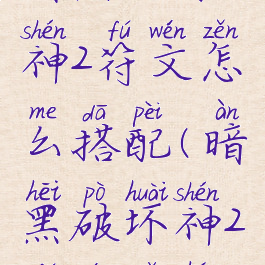 shén fú wén zěn
神2符文怎
me dā pèi àn
么搭配(暗
hēi pò huài shén
黑破坏神2